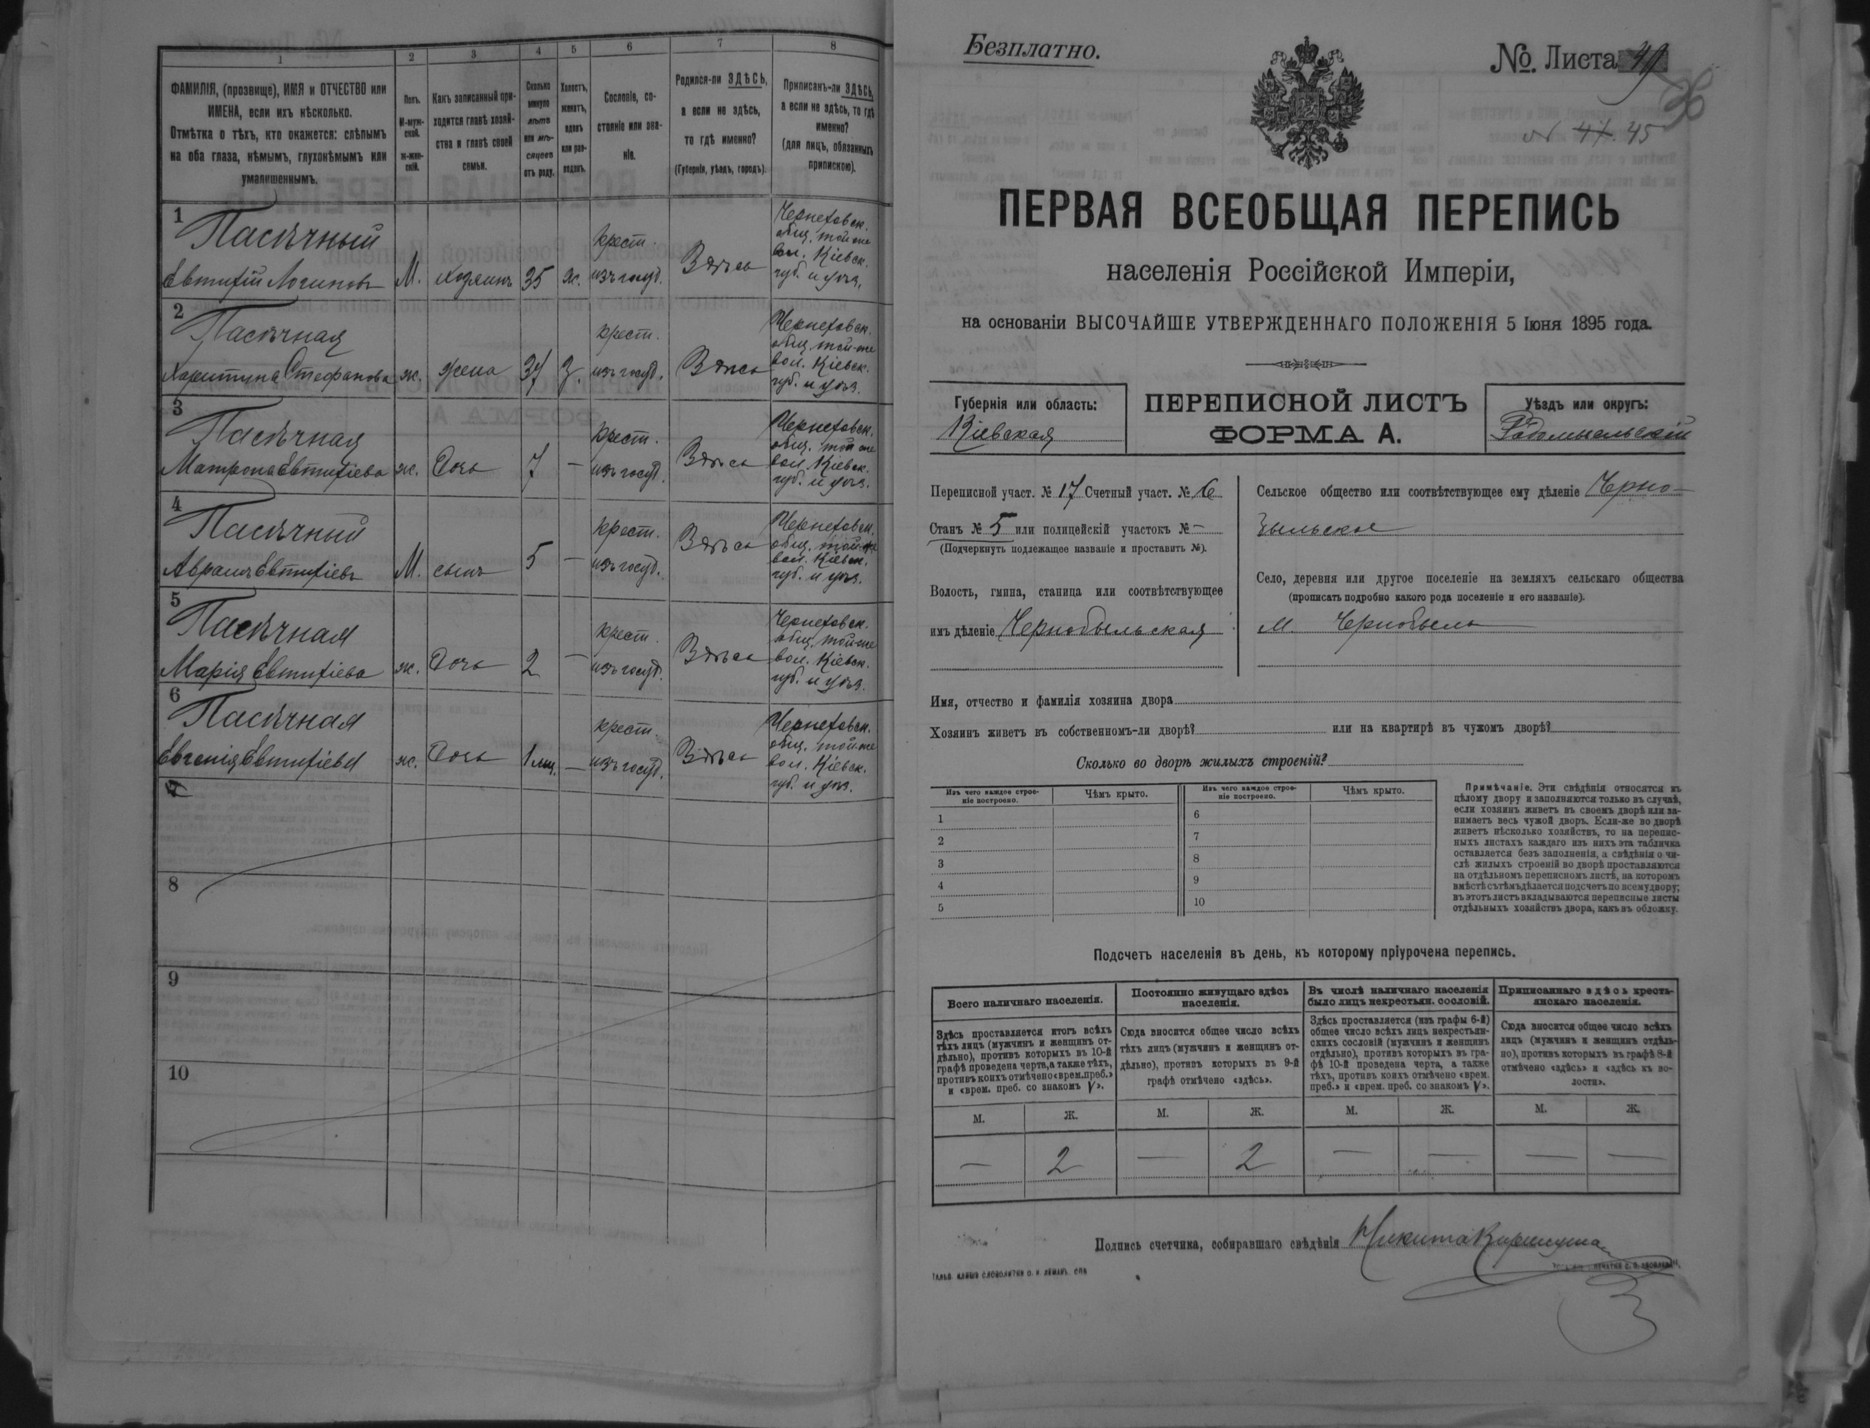 1 2 3 4 5 6 7 8
ФАМИЛІЯ, (прозвище), ИМЯ и ОТЧЕСТВО или
ИМЕНА, если ихъ нѣсколько.
Отмѣтка о тѣхъ, кто окажется: слѣпымъ
на оба глаза, нѣмымъ, глухонѣмымъ или
умалишеннымъ.
Полъ.
М-муж-
ской.
ж-жен-
скій.
Какъ записанный при-
ходится главѣ хозяй-
ства и главѣ своей
семьи.
Сколько
минуло
лѣтъ
или мѣ-
сяцевъ
отъ роду.
Холостъ,
женатъ,
вдовъ
или раз-
веденъ.
Сословіе, со-
стояніе или зва-
ніе.
Родился-ли ЗДѢСЬ,
а если не здѣсь,
то гдѣ именно?
(Губернія, уѣздъ, городъ).
Приписанъ-ли ЗДѢСЬ,
а если не здѣсь, то гдѣ
именно?
(для лицъ, обязанныхъ
припискою).
1
Пасѣчный
Евтифій Логиновъ М. хозяинъ 35 ж. крест. изъ госуд. Здѣсь
общ. той-же
вол. Кіевск.
губ. и уѣз.
2
Пасѣчная
Харитина Стефанова ж. жена 34 з. крест. изъ госуд. Здѣсь
общ. той-же
вол. Кіевск.
губ. и уѣз.
3
Пасѣчная
Матрона Евтифіева ж. дочь 7 — крест. изъ госуд. Здѣсь
общ. той же
вол. Кіевск.
губ. и уѣз.
4
Пасѣчный
Аврамъ Евтифіевъ М. сынъ 5 — крест. изъ госуд. Здѣсь
общ. той-же
вол. Кіевск.
губ. и уѣз.
5
Пасѣчная
Марія Евтифіева ж. дочь 2 — крест. изъ госуд. Здѣсь
общ. той-же
вол. Кіевск.
губ. и уѣз.
6
Пасѣчная
Евгенія Евтифіева ж. дочь 1 мѣс. — крест. изъ госуд. Здѣсь
общ. той-же
вол. Кіевск.
губ. и уѣз.
7
8
9
10
Безплатно.
№ Листа 49
N 47. 45
ПЕРВАЯ ВСЕОБЩАЯ ПЕРЕПИСЬ
населенія Россійской Имперіи,
на основаніи ВЫСОЧАЙШЕ УТВЕРЖДЕННАГО ПОЛОЖЕНІЯ 5 Іюня 1895 года.
Губернія или область:
Кіевская
ПЕРЕПИСНОЙ ЛИСТЪ
ФОРМА А.
Уѣздъ или округъ:
Радомысльскій
Переписной участ. № 17 Счетный участ. № 6
Станъ № 5 или полицейскій участокъ № —
(Подчеркнуть подлежащее названіе и проставить №).
Волость, гмина, станица или соотвѣтствующее
имъ дѣленіе Чернобыльская
Сельское общество или соотвѣтствующее ему дѣленіе Черно-
быльское
Село, деревня или другое поселеніе на земляхъ сельскаго общества
(прописать подробно какого рода поселеніе и его названіе).
М. Чернобыль
Имя, отчество и фамилія хозяина двора
Хозяинъ живетъ въ собственномъ-ли дворѣ? или на квартирѣ въ чужомъ дворѣ?
Сколько во дворѣ жилыхъ строеній?
Изъ чего каждое строе-
ніе построено.
Чѣмъ крыто.
Изъ чего каждое строе-
ніе построено.
Чѣмъ крыто.
1 6
2 7
3 8
4 9
5 10
Примѣчаніе. Эти свѣдѣнія относятся къ
цѣлому двору и заполняются только въ случаѣ,
если хозяинъ живетъ въ своемъ дворѣ или за-
нимаетъ весь чужой дворъ. Если-же во дворѣ
живетъ нѣсколько хозяйствъ, то на перепис-
ныхъ листахъ каждаго изъ нихъ эта табличка
оставляется безъ заполненія, а свѣдѣнія о чи-
слѣ жилыхъ строеній во дворѣ проставляются
на отдѣльномъ переписномъ листѣ, на которомъ
вмѣстѣ съ тѣмъ дѣлается подсчетъ по всему двору;
въ этотъ листъ вкладываются переписные листы
отдѣльныхъ хозяйствъ двора, какъ въ обложку.
Подсчетъ населенія въ день, къ которому пріурочена перепись.
Всего наличнаго населенія.
Здѣсь проставляется итогъ всѣхъ
тѣхъ лицъ (мужчинъ и женщинъ от-
дѣльно), противъ которыхъ въ 10-й
графѣ проведена черта, а также тѣхъ,
противъ коихъ отмѣчено «врем. преб.»
и «врем. преб. со знакомъ V».
Постоянно живущаго здѣсь
населенія.
Сюда вносится общее число всѣхъ
тѣхъ лицъ (мужчинъ и женщинъ от-
дѣльно), противъ которыхъ въ 9-й
графѣ отмѣчено «здѣсь».
Въ числѣ наличнаго населенія
было лицъ некрестьян. сословій.
Здѣсь проставляется (изъ графы 6-й)
общее число всѣхъ лицъ некрестьян-
скихъ сословій (мужчинъ и женщинъ
отдѣльно), противъ которыхъ въ гра-
фѣ 10-й проведена черта, а также
тѣхъ, противъ коихъ отмѣчено «врем.
преб.» и «врем. преб. со знакомъ V».
Приписаннаго здѣсь кресть-
янскаго населенія.
Сюда вносится общее число всѣхъ
лицъ (мужчинъ и женщинъ отдѣль-
но), противъ которыхъ въ графѣ 8-й
отмѣчено «здѣсь» и «здѣсь къ во-
лости».
М. Ж. М. Ж. М. Ж. М. Ж.
— 2 — 2 — — — —
Подпись счетчика, собиравшаго свѣдѣнія Никита